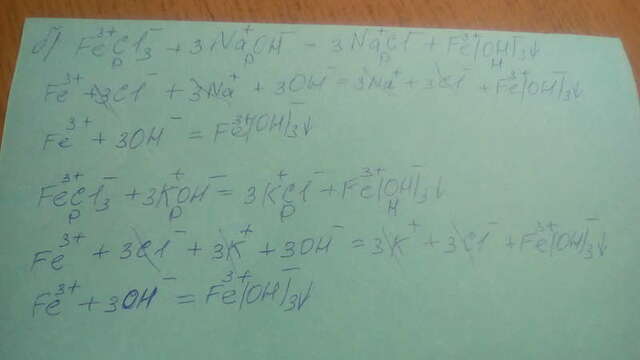 б) Fe³⁺Cl⁻₃ + 3Na⁺OH⁻ = 3Na⁺Cl⁻ + Fe³⁺(OH)⁻₃↓
р р р н
Fe³⁺ + 3Cl⁻ + 3Na⁺ + 3OH⁻ = 3Na⁺ + 3Cl⁻ + Fe³⁺(OH)⁻₃↓
Fe³⁺ + 3OH⁻ = Fe³⁺(OH)⁻₃↓
Fe³⁺Cl⁻₃ + 3K⁺OH⁻ = 3K⁺Cl⁻ + Fe³⁺(OH)⁻₃↓
р р р н
Fe³⁺ + 3Cl⁻ + 3K⁺ + 3OH⁻ = 3K⁺ + 3Cl⁻ + Fe³⁺(OH)⁻₃↓
Fe³⁺ + 3OH⁻ = Fe³⁺(OH)⁻₃↓